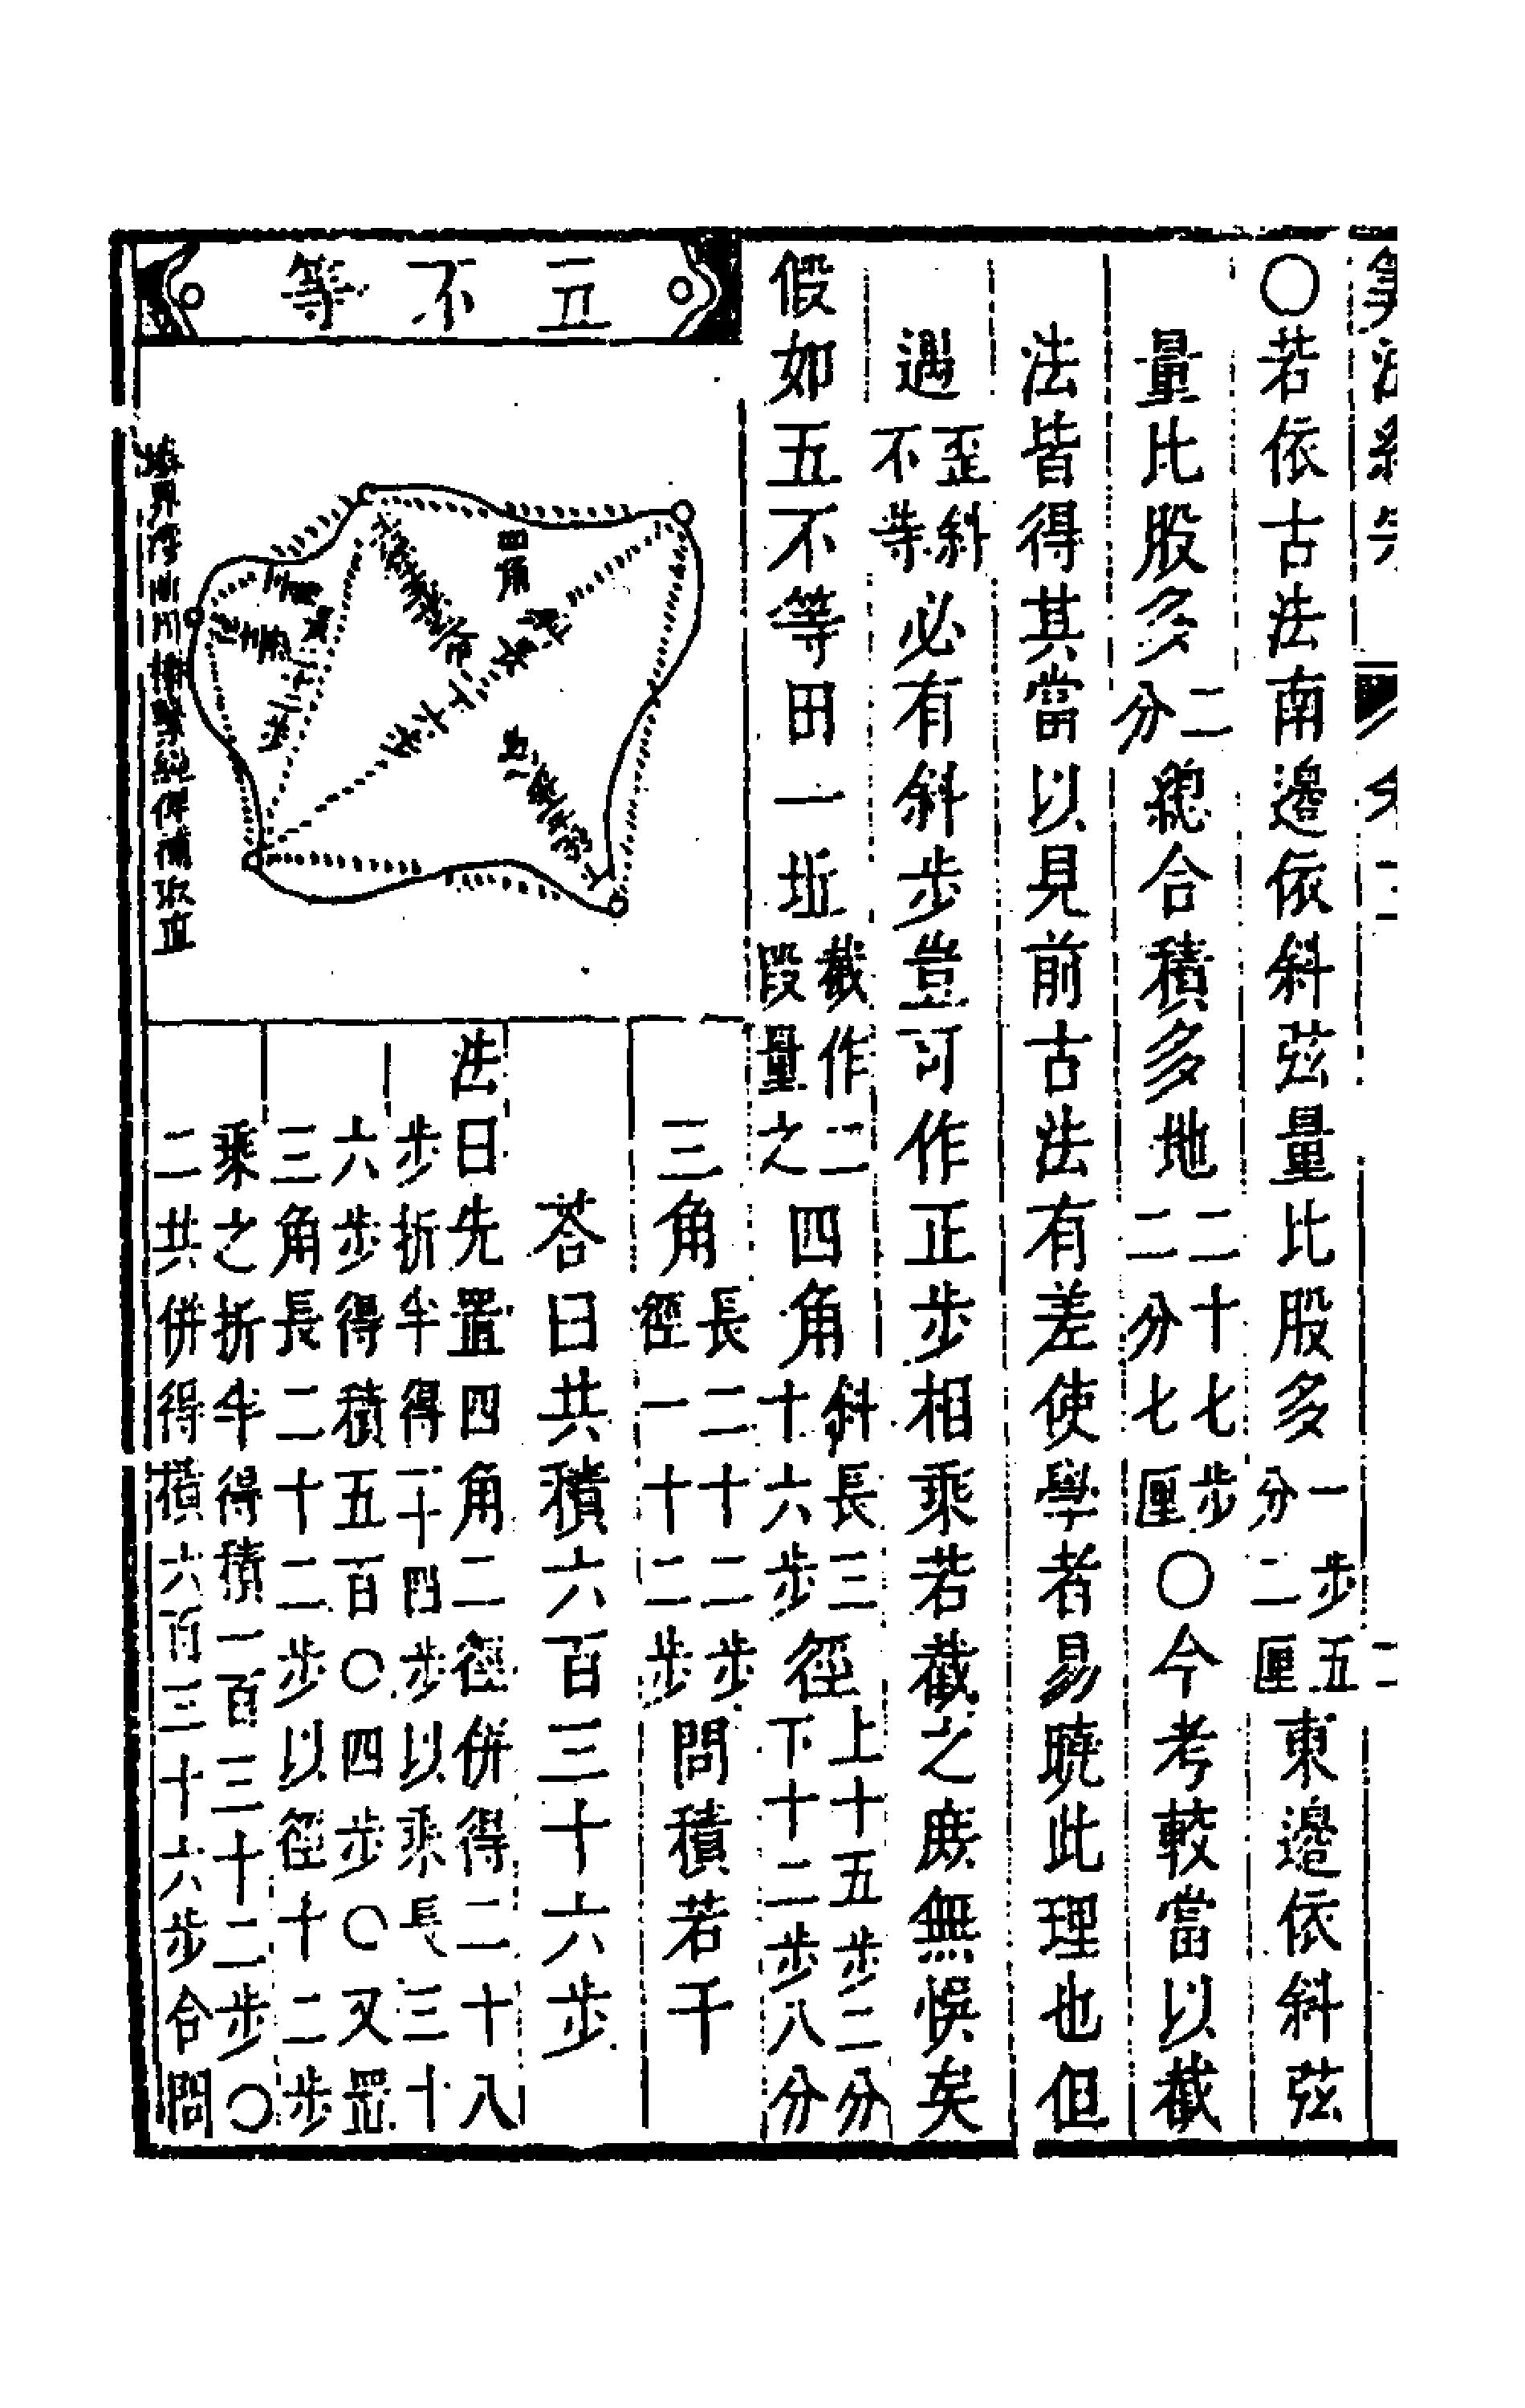 ○若依古法南邊依斜弦量比股多一步五分二厘東邊依斜弦
量比股多二分總合積多地二十七步二分七厘○今考較當以截
法皆得其當以見前古法有差使學者易曉此理也但
遇歪斜不等必有斜步豈可作正步相乘若截之庶無悞矣
假如五不等田一坵截作二段量之四角斜長三十六步徑上十五步二分下十二步八分
三角長二十二步徑一十二步問積若干
荅曰共積六百三十六步
五不等
四角
繫繩併補取直
法曰先置四角二徑併得二十八
步折半得一十四步以乘長三十
六步得積五百○四步○又置
三角長二十二步以徑十二步
乘之折半得積一百三十二步○
二共併得積六百三十六步合問